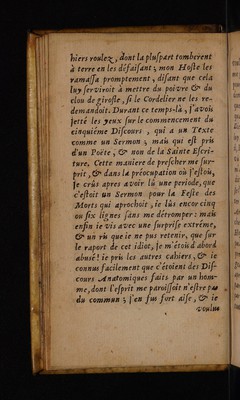 hiers roulez, dont la pluspart tomberent
à terre en les défaisant; mon Hoste les
ramassa promptement, disant que cela
luy serviroit à mettre du poivre & du
clou de girofle, si le Cordelier ne les re-
demandoit. Durant ce temps-là, j'avois
jetté les yeux sur le commencement du
cinquiéme Discours, qui a un Texte
comme un Sermon, mais qui est pris
d'un Poëte, & non de la Sainte Escri-
ture. Cette maniere de prescher me sur-
prit, & dans la préocupation où j'estois,
je crûs apres avoir lû une periode, que
c'estoit un Sermon pour la Feste des
Morts qui aprochoit, ie lûs encor cinq
ou six lignes sans me détromper: mais
enfin ie vis avec une surprise extréme,
& un ris que ie ne pus retenir, que sur
le raport de cet idiot, je m'étois d'abord
abusé! ie pris les autres cahiers, & ie
connus facilement que c'étoient des Dis-
cours Anatomiques faits par un hom-
me, dont l'esprit me paroissoit n'estre pas
du commun; j'en fus fort aise, & ie
voulus